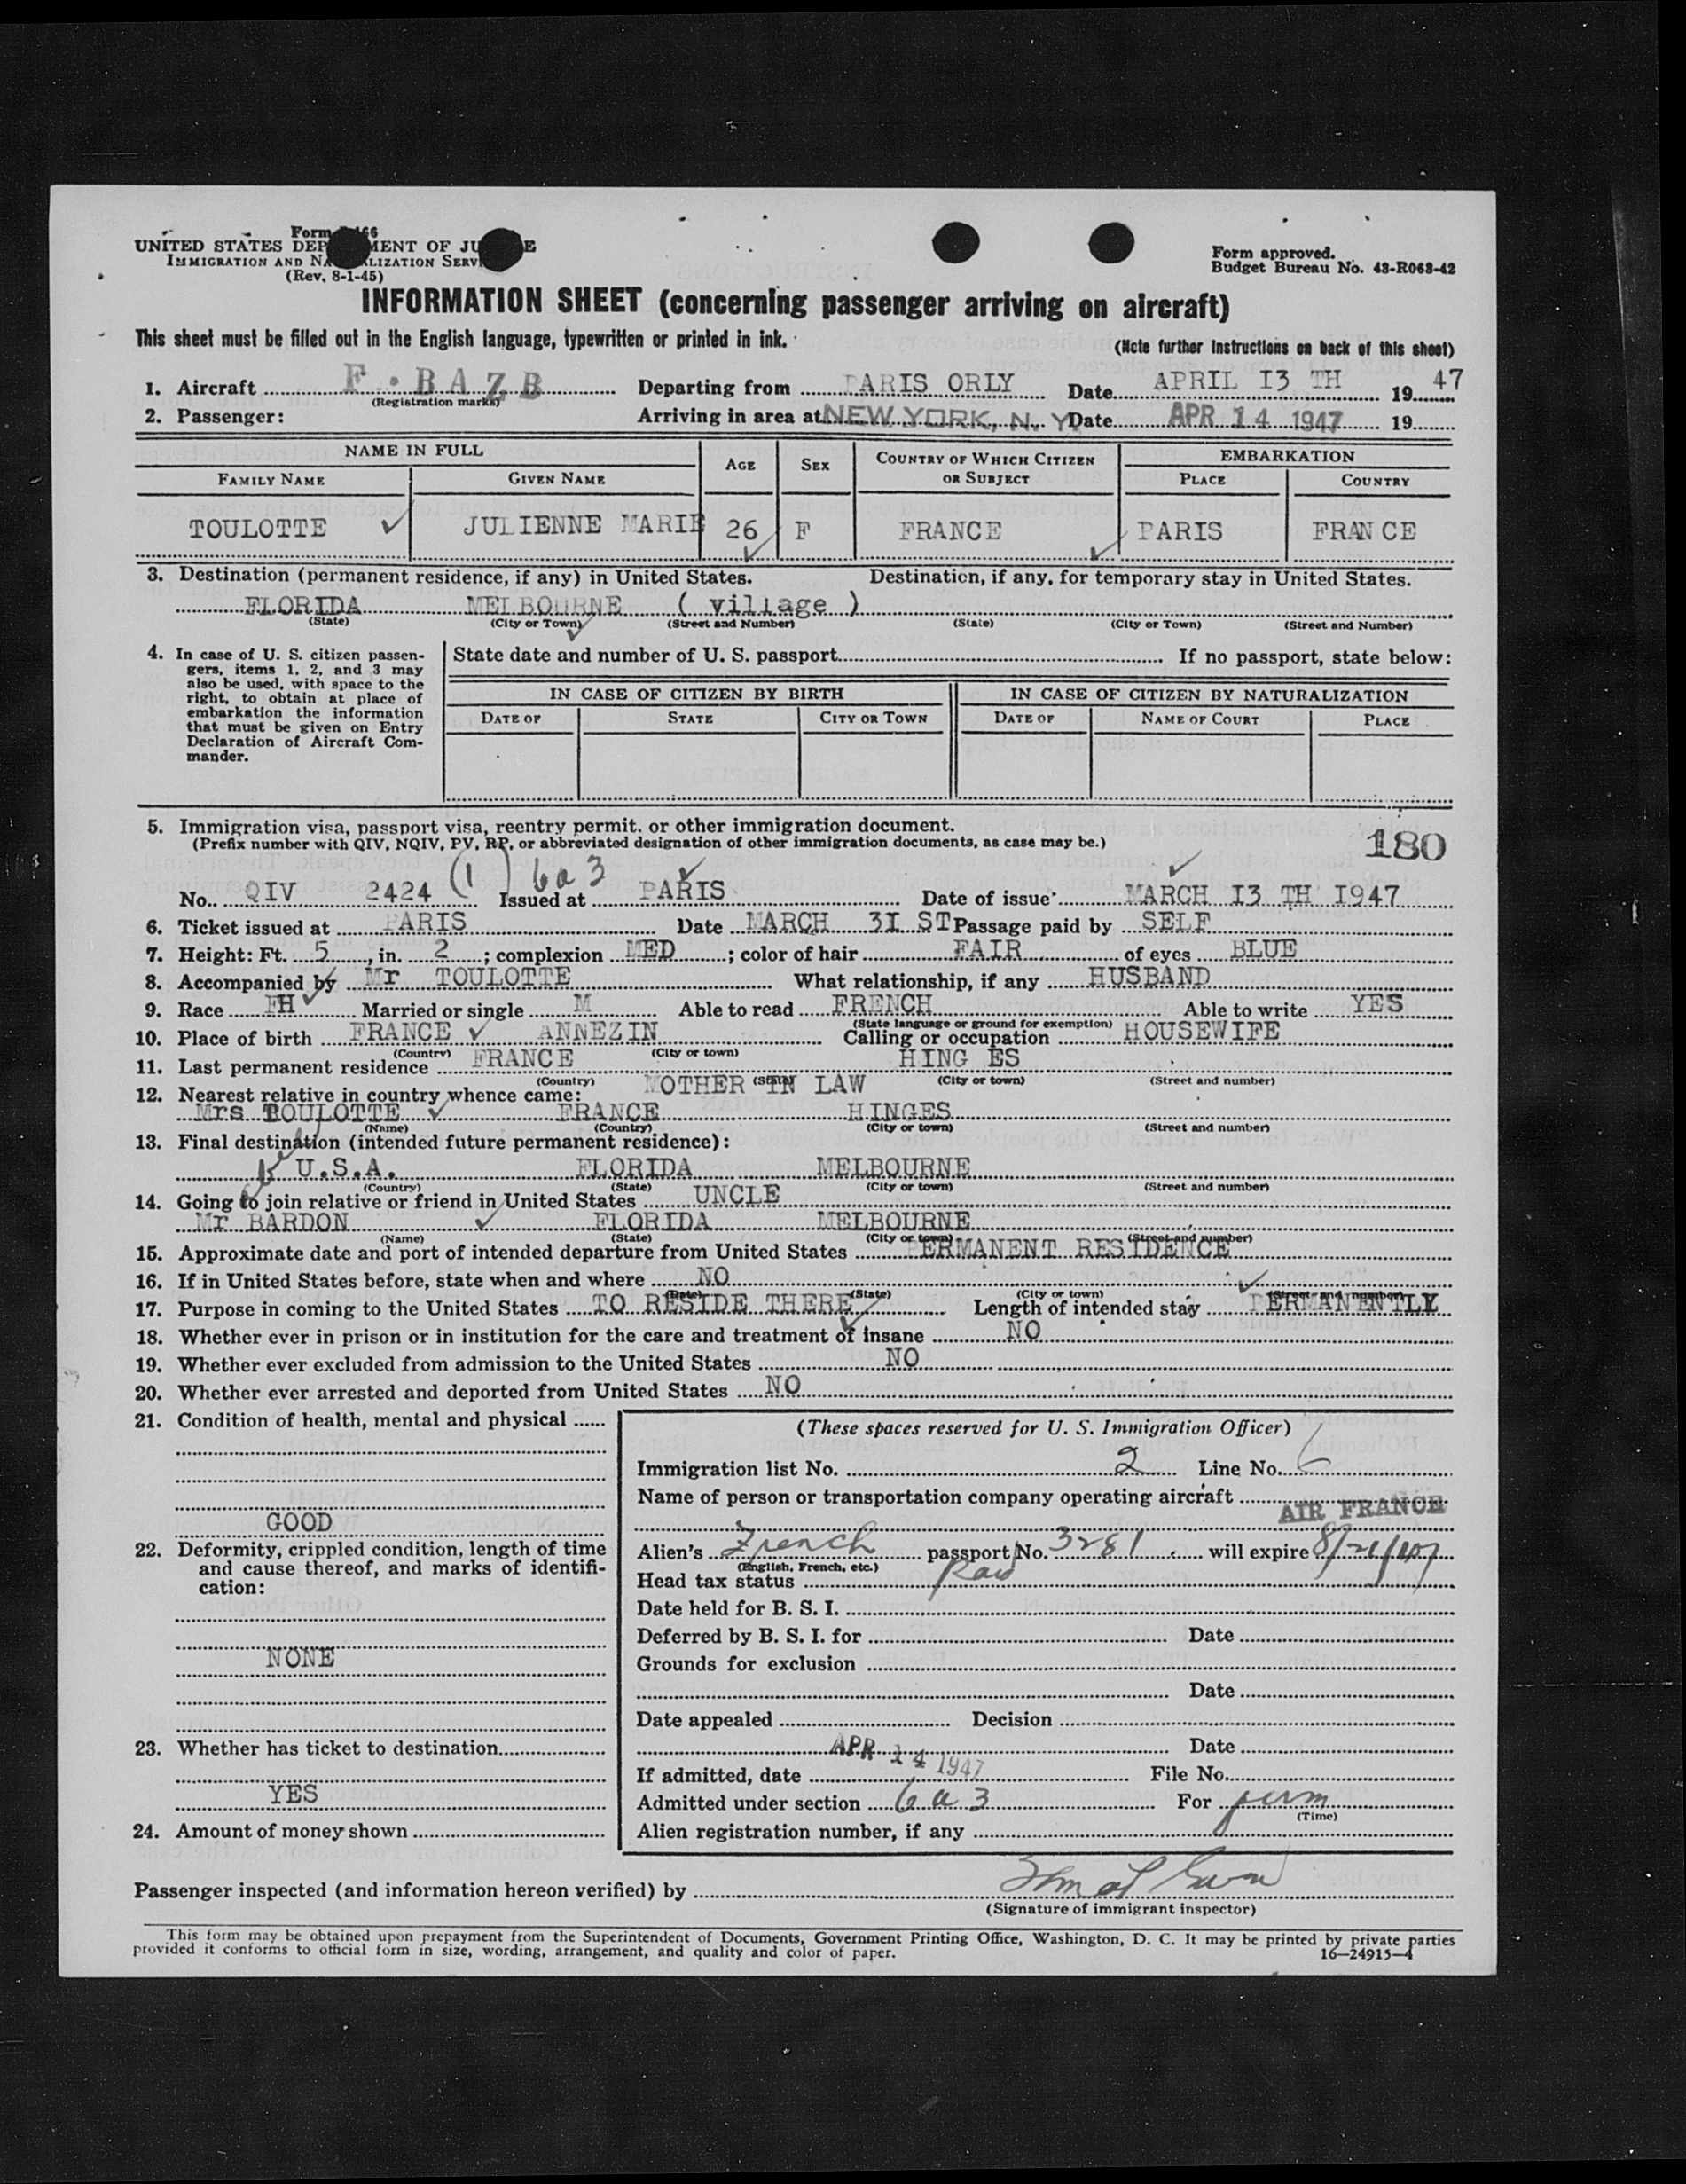 Form
UNITED STATES DEP MENT OF JU E
IMMIGRATION AND NA LIZATION SERV
(Rev. 8-1-45)
Form approved.
Budget Bureau No. 43-R063-42
INFORMATION SHEET (concerning passenger arriving on aircraft)
This sheet must be filled out in the English language, typewritten or printed in ink.
(Note further instructions on back of this sheet)
1. Aircraft F.BAZB Departing from PARIS ORLY Date APRIL I3 TH 19 47
(Registration marks)
2. Passenger: Arriving in area at NEW YORK, N. Y. Date APR 14 1947 19
NAME IN FULL AGE SEX COUNTRY OF WHICH CITIZEN OR SUBJECT EMBARKATION
FAMILY NAME GIVEN NAME PLACE COUNTRY
TOULOTTE JULIENNE MARIE 26 F FRANCE PARIS FRANCE
3. Destination (permanent residence, if any) in United States. Destination, if any, for temporary stay in United States.
FLORIDA MELBOURNE ( village )
(State) (City or Town) (Street and Number) (State) (City or Town) (Street and Number)
4. In case of U. S. citizen passen-
gers, items 1, 2, and 3 may
also be used, with space to the
right, to obtain at place of
embarkation the information
that must be given on Entry
Declaration of Aircraft Com-
mander.
State date and number of U. S. passport If no passport, state below:
IN CASE OF CITIZEN BY BIRTH IN CASE OF CITIZEN BY NATURALIZATION
DATE OF STATE CITY OR TOWN DATE OF NAME OF COURT PLACE
5. Immigration visa, passport visa, reentry permit, or other immigration document.
(Prefix number with QIV, NQIV, PV, RP, or abbreviated designation of other immigration documents, as case may be.)
180
No. QIV 2424 (1) 6a3 Issued at PARIS Date of issue MARCH I3 TH I947
6. Ticket issued at PARIS Date MARCH 3I ST Passage paid by SELF
7. Height: Ft. 5, in. 2; complexion MED; color of hair FAIR of eyes BLUE
8. Accompanied by Mr TOULOTTE What relationship, if any HUSBAND
9. Race FH Married or single M Able to read FRENCH Able to write YES
(State language or ground for exemption)
10. Place of birth FRANCE ANNEZIN Calling or occupation HOUSEWIFE
(Country) (City or town)
11. Last permanent residence FRANCE HING ES
(Country) (State) (City or town) (Street and number)
12. Nearest relative in country whence came: MOTHER IN LAW
Mrs TOULOTTE FRANCE HINGES
(Name) (Country) (City or town) (Street and number)
13. Final destination (intended future permanent residence):
U.S.A. FLORIDA MELBOURNE
(Country) (State) (City or town) (Street and number)
14. Going to join relative or friend in United States UNCLE
Mr BARDON FLORIDA MELBOURNE
(Name) (State) (City or town) (Street and number)
15. Approximate date and port of intended departure from United States PERMANENT RESIDENCE
16. If in United States before, state when and where NO
(Date) (State) (City or town) (Street and number)
17. Purpose in coming to the United States TO RESIDE THERE Length of intended stay PERMANENTLY
18. Whether ever in prison or in institution for the care and treatment of insane NO
19. Whether ever excluded from admission to the United States NO
20. Whether ever arrested and deported from United States NO
21. Condition of health, mental and physical
GOOD
22. Deformity, crippled condition, length of time
and cause thereof, and marks of identifi-
cation:
NONE
23. Whether has ticket to destination
YES
24. Amount of money shown
(These spaces reserved for U. S. Immigration Officer)
Immigration list No. 2 Line No. 6
Name of person or transportation company operating aircraft
AIR FRANCE
Alien's French passport No. 3281 will expire
(English, French, etc.)
Head tax status Paid
Date held for B. S. I.
Deferred by B. S. I. for Date
Grounds for exclusion
Date
Date appealed Decision
Date
If admitted, date APR 14 1947 File No.
Admitted under section 6a3 For perm
(Time)
Alien registration number, if any
Passenger inspected (and information hereon verified) by
(Signature of immigrant inspector)
This form may be obtained upon prepayment from the Superintendent of Documents, Government Printing Office, Washington, D. C. It may be printed by private parties
provided it conforms to official form in size, wording, arrangement, and quality and color of paper.
16—24915-4